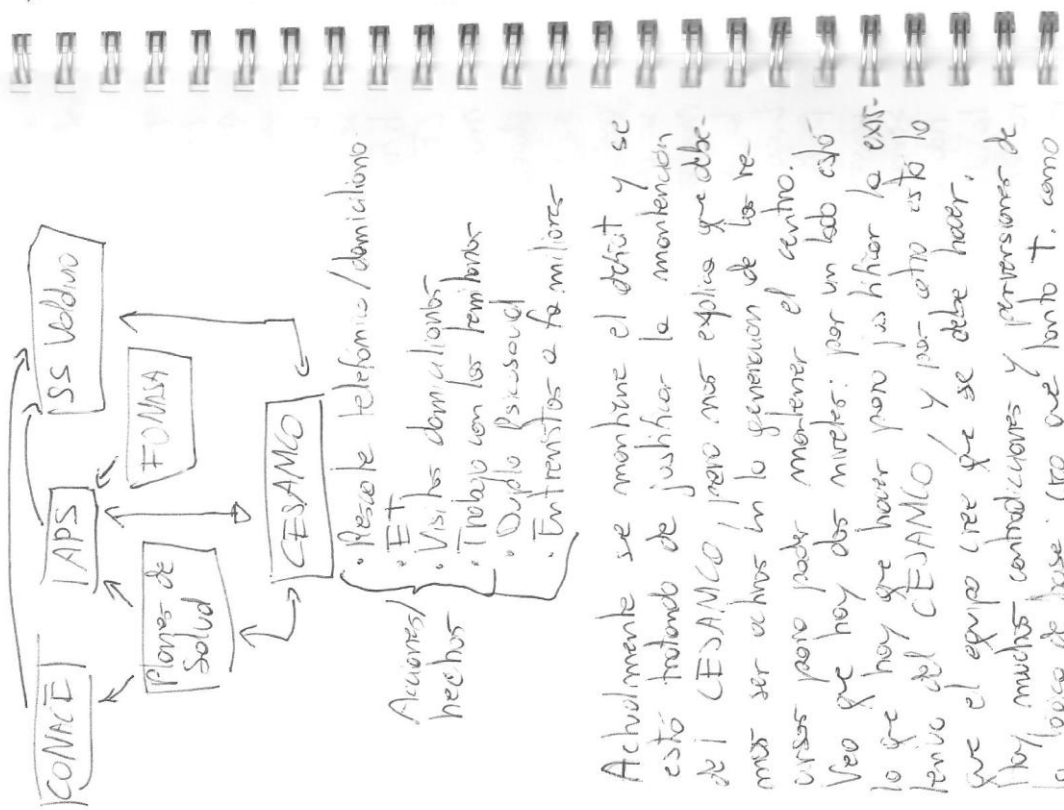 CONACE
APS
SS Valdivia
FONASA
Planes de
Salud
CESAMCO
Acciones/
hechos
• Rescate telefónico/domiciliario
• ET
• Visitas domiciliarias
• Trabajo con las familias
• Dupla Psicosocial
• Entrevistas a familiares
Actualmente se mantiene el déficit y se
está tratando de justificar la mantención
del CESAMCO, pero nos explica que debe-
mos ser activos en la generación de los re-
cursos para poder mantener el centro.
Veo que hay dos niveles: por un lado está
lo que hay que hacer para justificar la exis-
tencia del CESAMCO y por otro está lo
que el equipo cree que se debe hacer.
Hay muchas contradicciones y perversiones de
la lógica de base: creo que tanto T. como